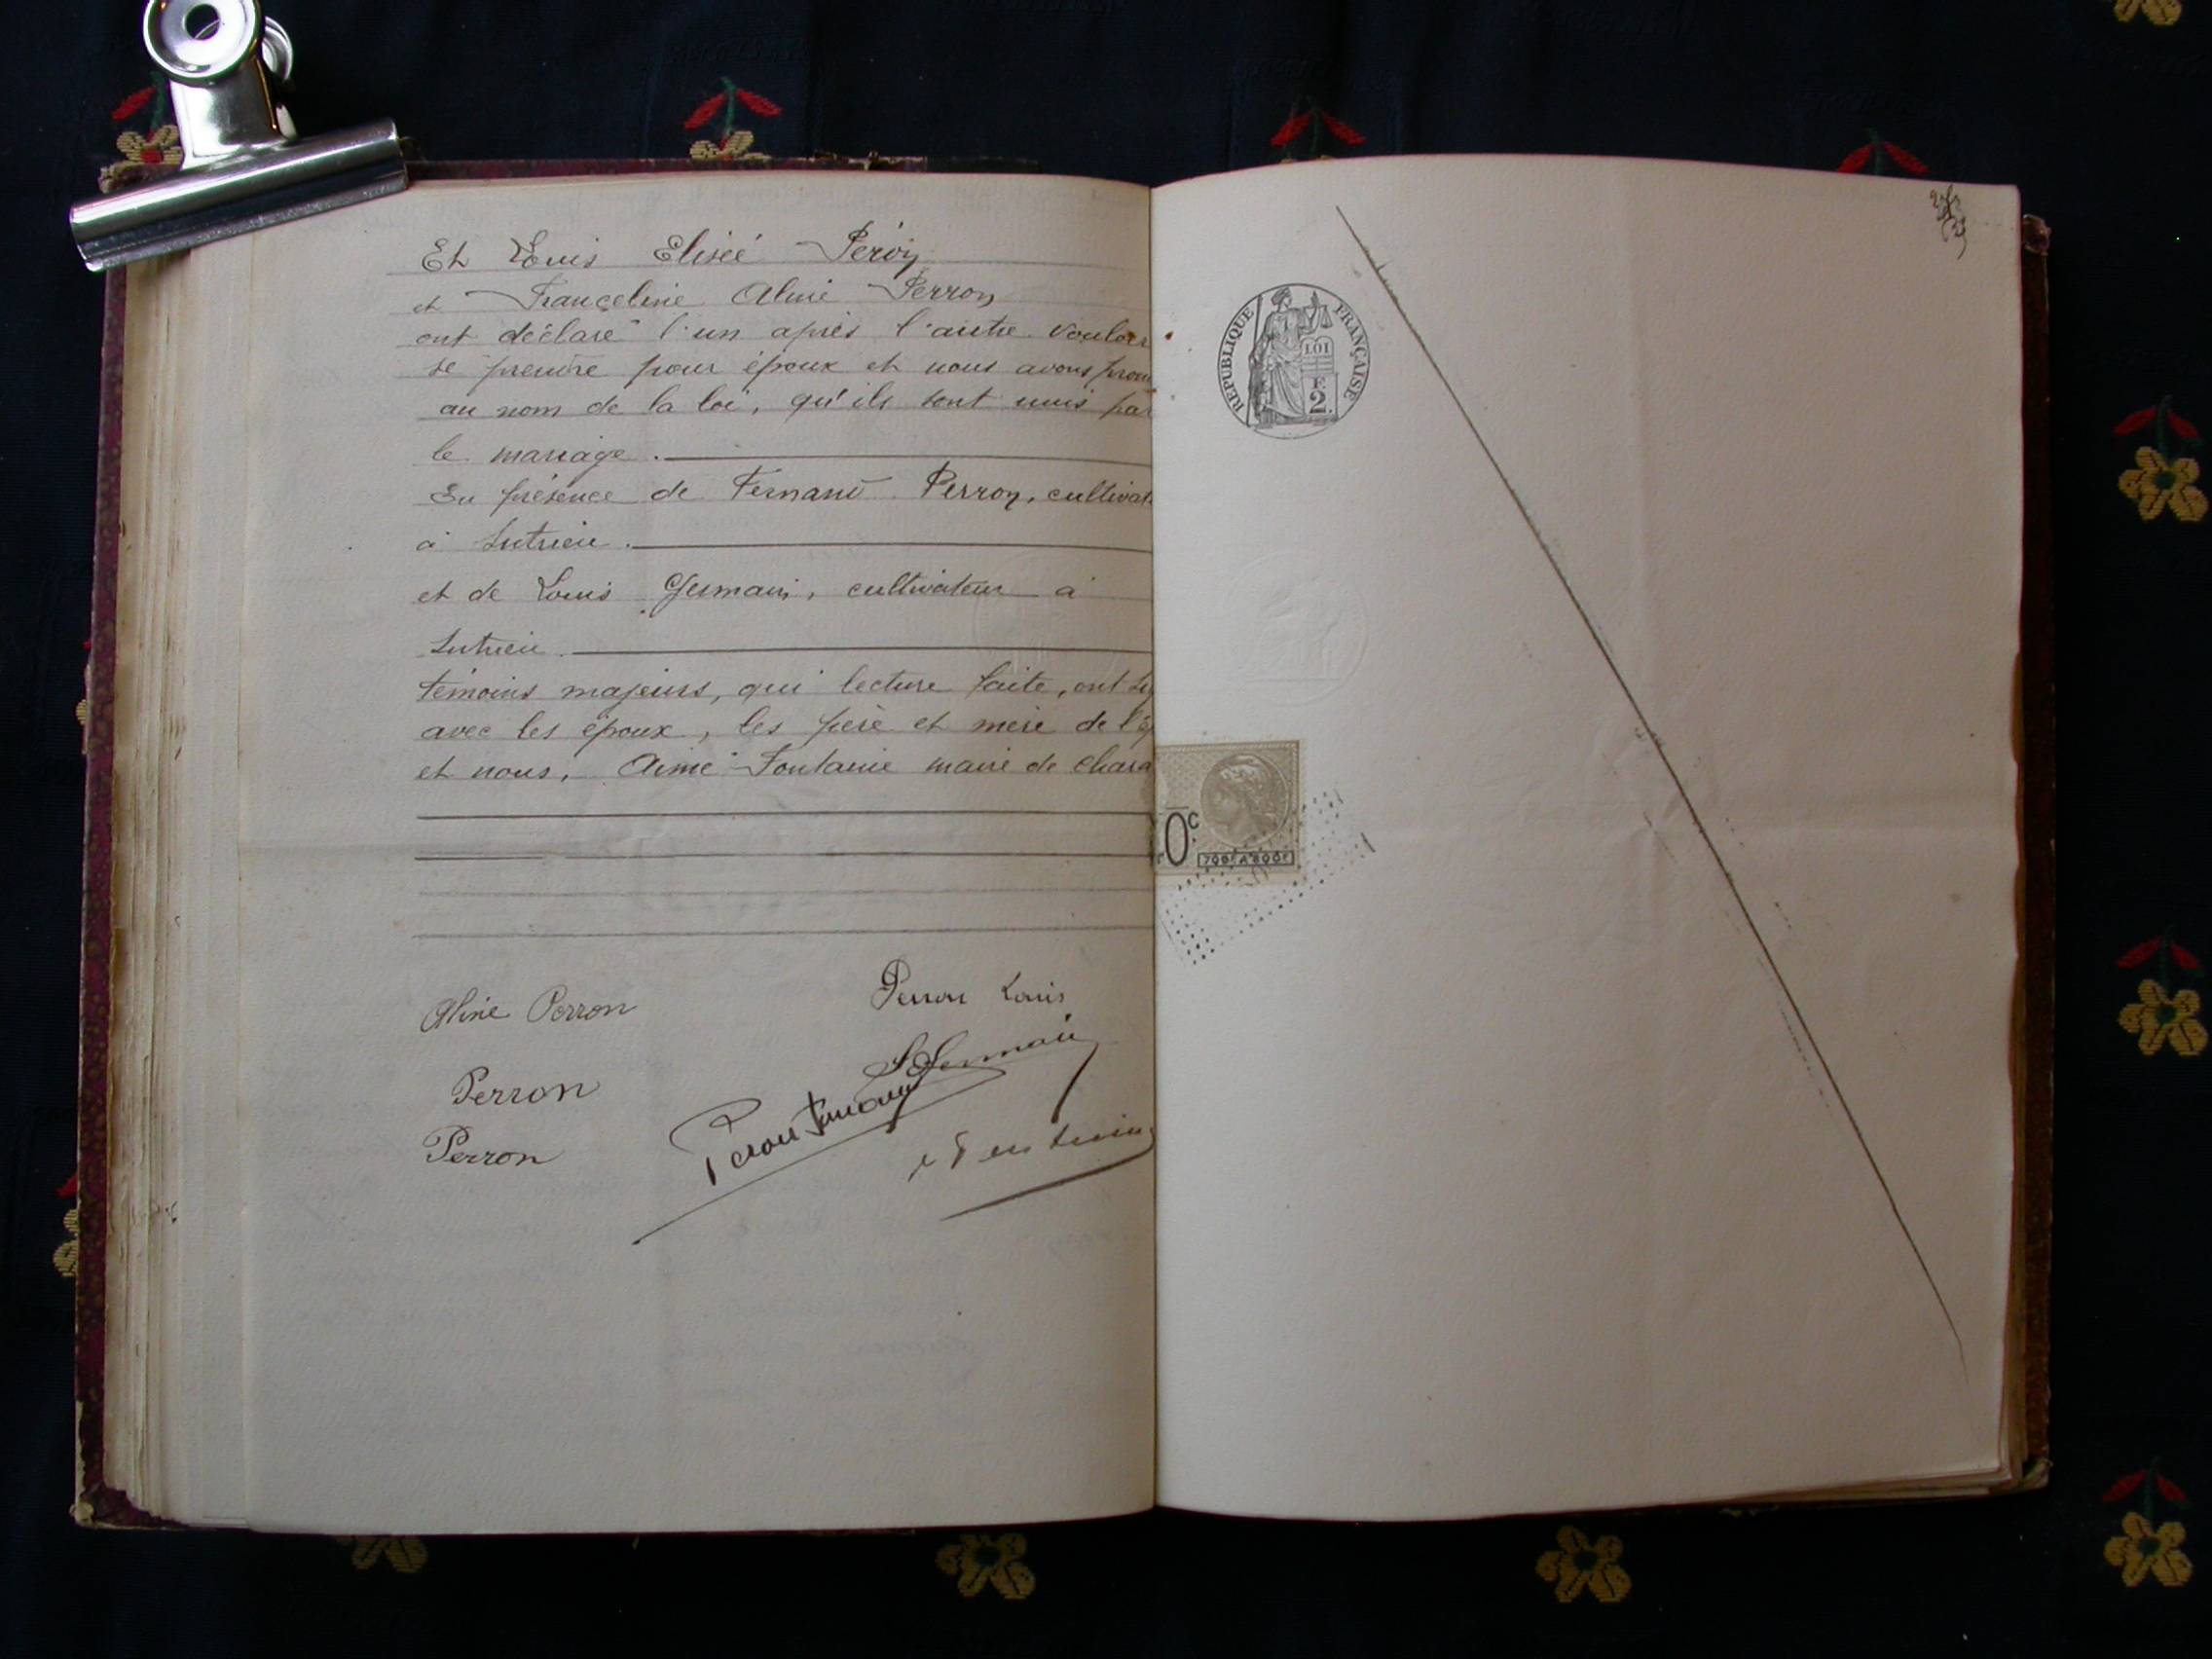 Et Louis Elisée Peroy
et Franceline Aline Perron
ont déclaré l'un après l'autre vouloir
se prendre pour époux et nous avons pron
au nom de la loi, qu'ils sont unis par
le mariage.
En présence de Fernand Perron, cultivat
à Lutrieu.
et de Louis Germain, cultivateur à
Lutrieu
témoins majeurs, qui lecture faite, ont si
avec les époux, les père et mère de l'é
et nous, Aimé Fontaine maire de Chara
Aline Perron
Perron Louis
L Germain
Perron
Perron
REPUBLIQUE FRANÇAISE
LOI
F.
2.
0c
700F A 800F